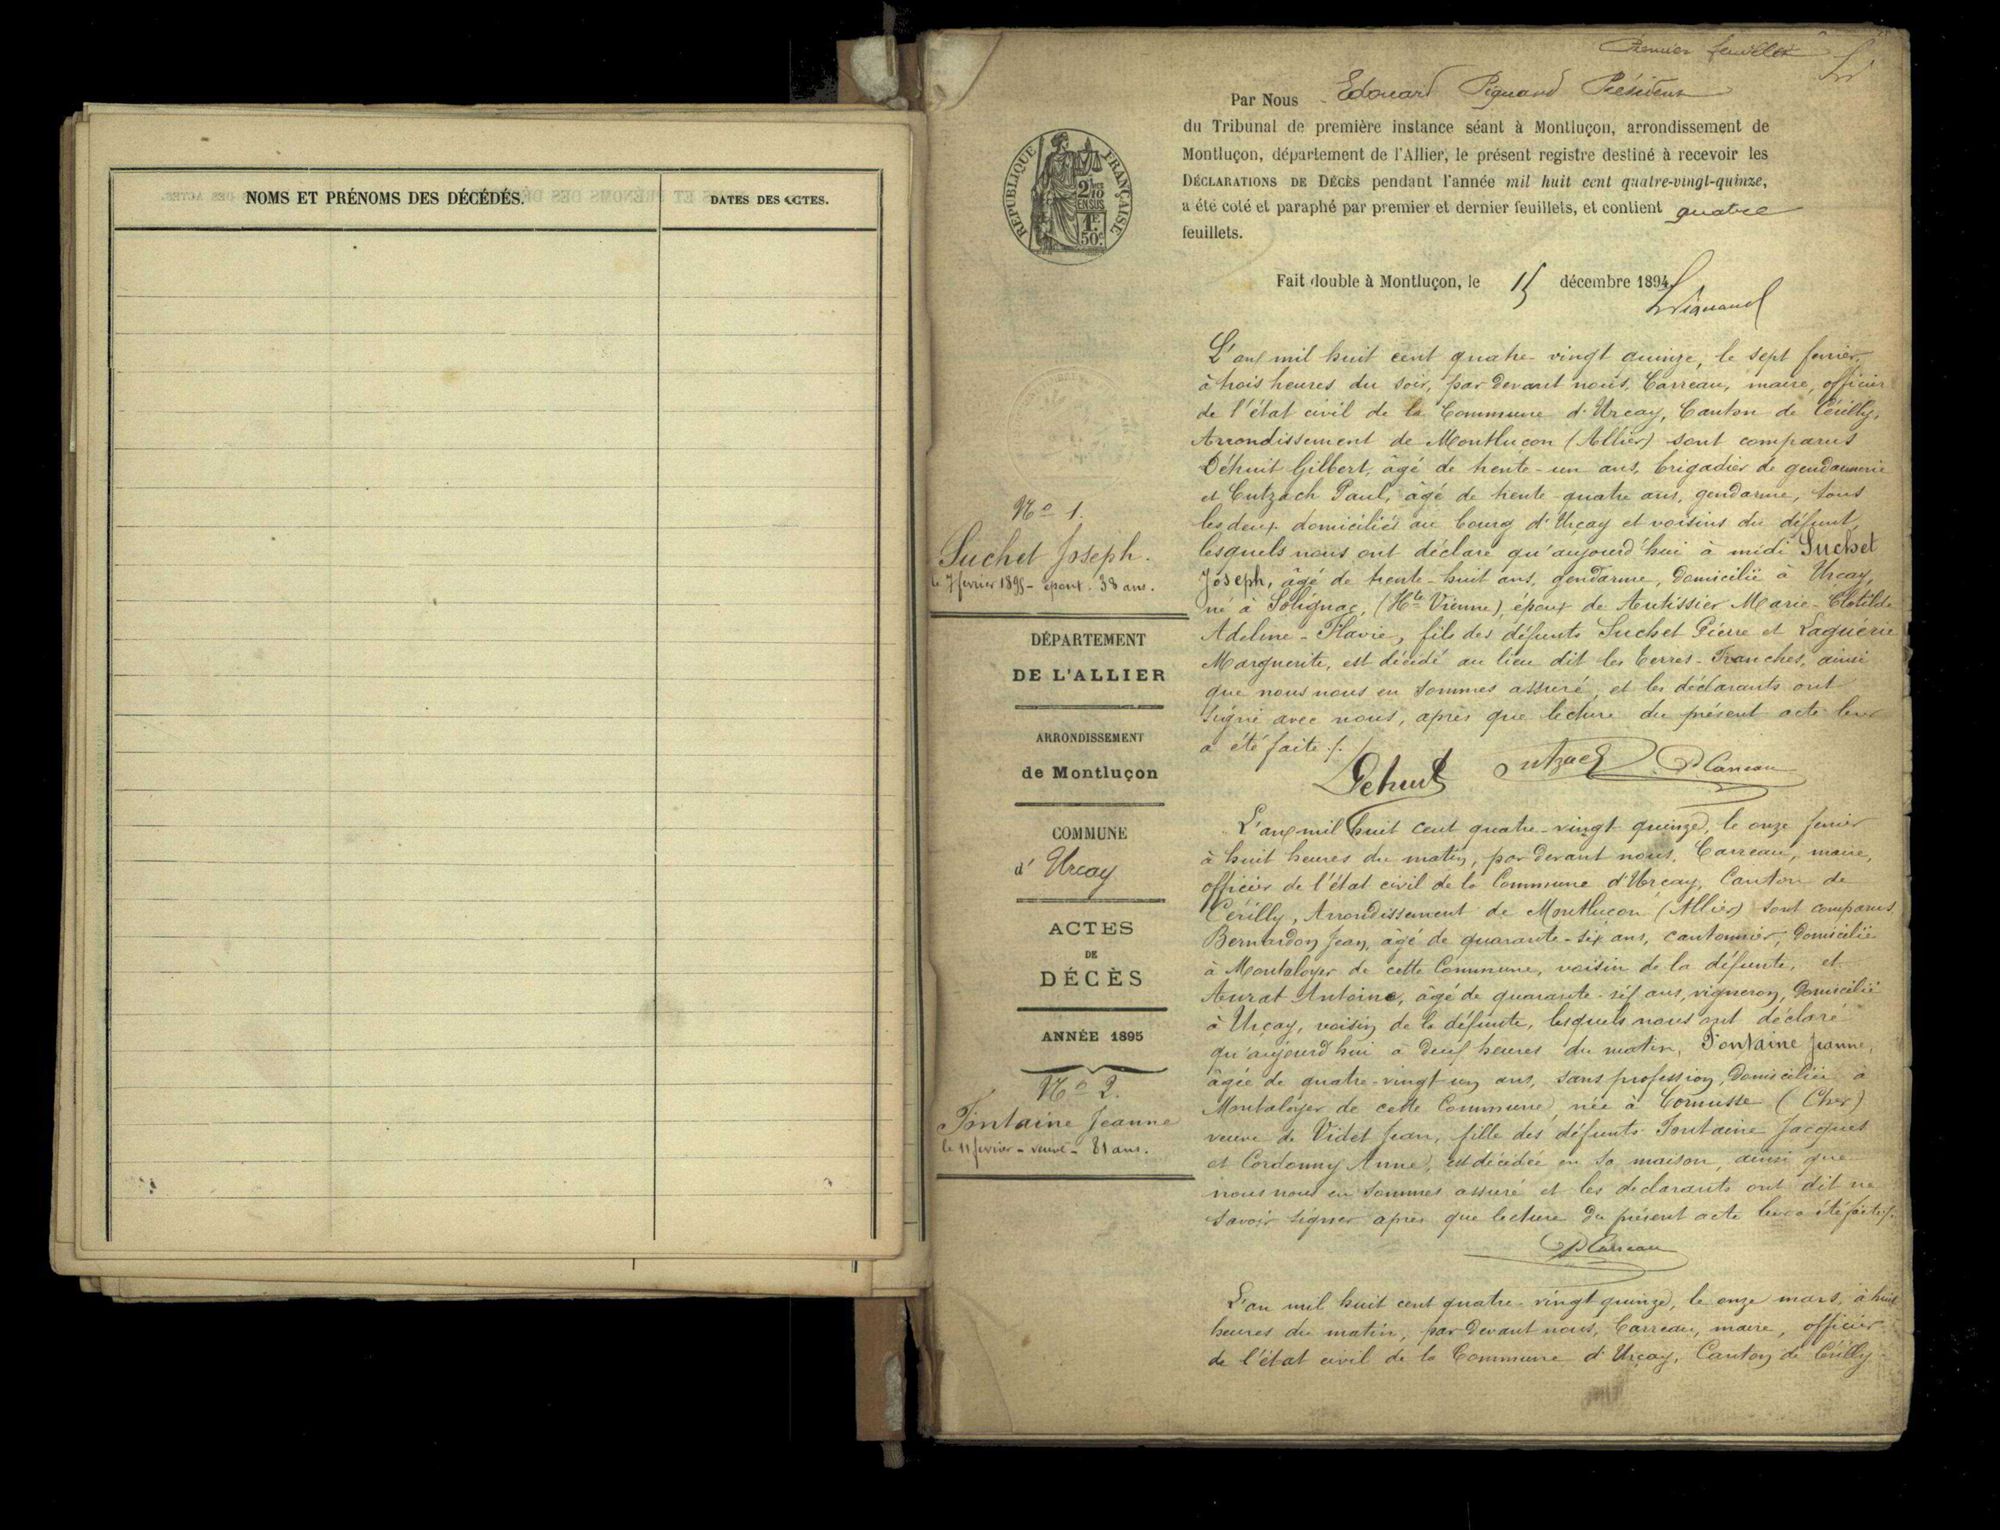 NOMS ET PRÉNOMS DES DÉCÉDÉS.
DATES DES ACTES.
Premier feuillet
Par Nous Edouard Pignand Président
du Tribunal de première instance séant à Montluçon, arrondissement de
Montluçon, département de l'Allier, le présent registre destiné à recevoir les
DÉCLARATIONS DE DÉCÈS pendant l'année mil huit cent quatre-vingt-quinze,
a été coté et paraphé par premier et dernier feuillets, et contient quatre
feuillets.
Fait double à Montluçon, le 15 décembre 1894
RÉPUBLIQUE FRANÇAISE
2/10 EN SUS
1F. 50c
L'an mil huit cent quatre-vingt quinze, le sept fevrier,
à trois heures du soir, par devant nous, Carreau, maire, officier
de l'état civil de la Commune d'Urçay, Canton de Cérilly,
Arrondissement de Montluçon (Allier) sont comparus
Déhuit Gilbert, âgé de trente-un ans, brigadier de gendarmerie
et Cutzach Paul, âgé de trente-quatre ans, gendarme, tous
les deux domiciliés au bourg d'Urçay et voisins du défunt,
lesquels nous ont déclaré qu'aujourd'hui à midi Suchet
Joseph, âgé de trente-huit ans, gendarme, domicilié à Urçay,
né à Solignac, (Hte Vienne), époux de Autissier Marie-Clotilde
Adeline-Flavie, fils des défunts Suchet Pierre et Laguérie
Marguerite, est décédé au lieu dit les Terres-Franches, ainsi
que nous nous en sommes assuré, et les déclarants ont
signé avec nous, après que lecture du présent acte leur
a été faite ./.
Dehuit Cutzach P Carreau
No 1.
Suchet Joseph.
le 7 fevrier 1895 - époux. 38 ans.
DÉPARTEMENT
DE L'ALLIER
ARRONDISSEMENT
de Montluçon
COMMUNE
d' Urçay
ACTES
DE
DÉCÈS
ANNÉE 1895
No 2.
Fontaine Jeanne
le 11 fevrier - veuve - 81 ans.
L'an mil huit cent quatre-vingt quinze, le onze fevrier
à huit heures du matin, par devant nous, Carreau, maire,
officier de l'état civil de la Commune d'Urçay, Canton de
Cérilly, Arrondissement de Montluçon (Allier) sont comparus
Bernardon Jean, âgé de quarante-six ans, cantonnier, domicilié
à Montaloyer de cette Commune, voisin de la défunte, et
Aurat Antoine, âgé de quarante-sept ans, vigneron, domicilié
à Urçay, voisin de la défunte, lesquels nous ont déclaré
qu'aujourd'hui à deux heures du matin, Fontaine Jeanne,
âgée de quatre-vingt un ans, sans profession, domiciliée à
Montaloyer de cette Commune, née à Cornusse (Cher)
veuve de Videt Jean, fille des défunts Fontaine Jacques
et Cordonny Anne, est décédée en sa maison, ainsi que
nous nous en sommes assuré et les déclarants ont dit ne
savoir signer après que lecture du présent acte leur a été faite ./.
P Carreau
L'an mil huit cent quatre-vingt quinze, le onze mars, à huit
heures du matin, par devant nous, Carreau, maire, officier
de l'état civil de la Commune d'Urçay, Canton de Cérilly